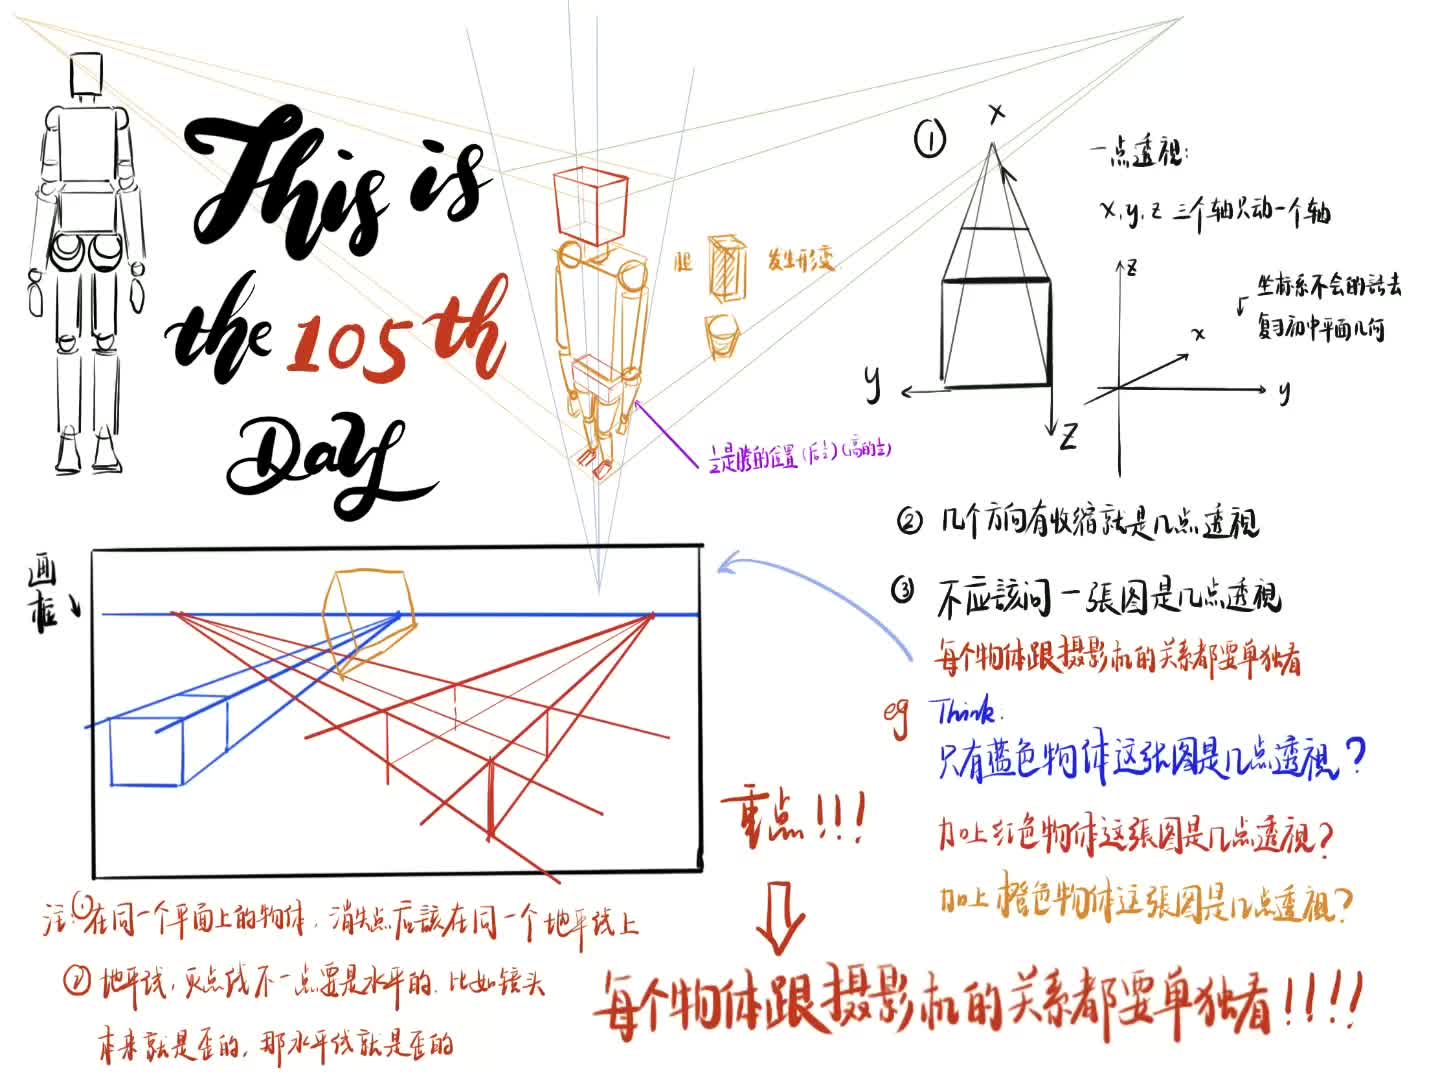 This is
the 105th
Day
发生形变
½是胯的位置(后½)(高的½)
①
x
y
z
一点透視:
x,y,z 三个轴只动一个轴
z
x
y
坐标系不会的話去
复习初中平面几何
② 几个方向有收缩就是几点透視
③ 不应該问一張图是几点透視
每个物体跟摄影机的关系都要単独看
eg Think.
只有蓝色物体这张图是几点透視?
加上红色物体这張图是几点透視?
加上橙色物体这張图是几点透視?
画框
重点!!!
每个物体跟摄影机的关系都要单独看!!!!
注:①在同一个平面上的物体,消失点应該在同一个地平线上
②地平线,灭点线不一点要是水平的.比如镜头
本来就是歪的,那水平线就是歪的